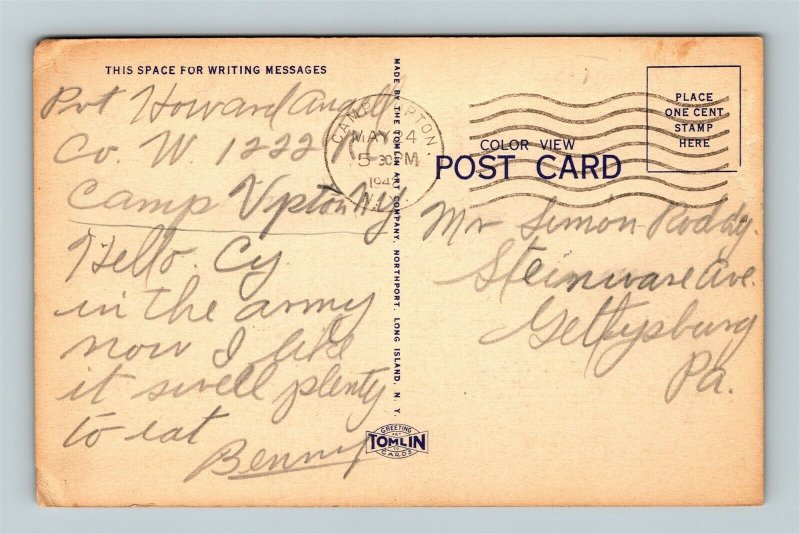 THIS SPACE FOR WRITING MESSAGES
Pvt Howard Angell
Co. W. 1222
Camp Upton Ny
Hello. Cy
in the army
now I like
it swell plenty
to eat
Benny
MADE BY THE TOMLIN ART COMPANY, NORTHPORT, LONG ISLAND, N. Y.
GREETING
TOMLIN
CARDS
CAMP UPTON,
MAY 24
5 30 PM
194
N.Y.
COLOR VIEW
POST CARD
PLACE
ONE CENT
STAMP
HERE
Mr Simon Roddy.
Steinware Ave.
Gettysburg
Pa.